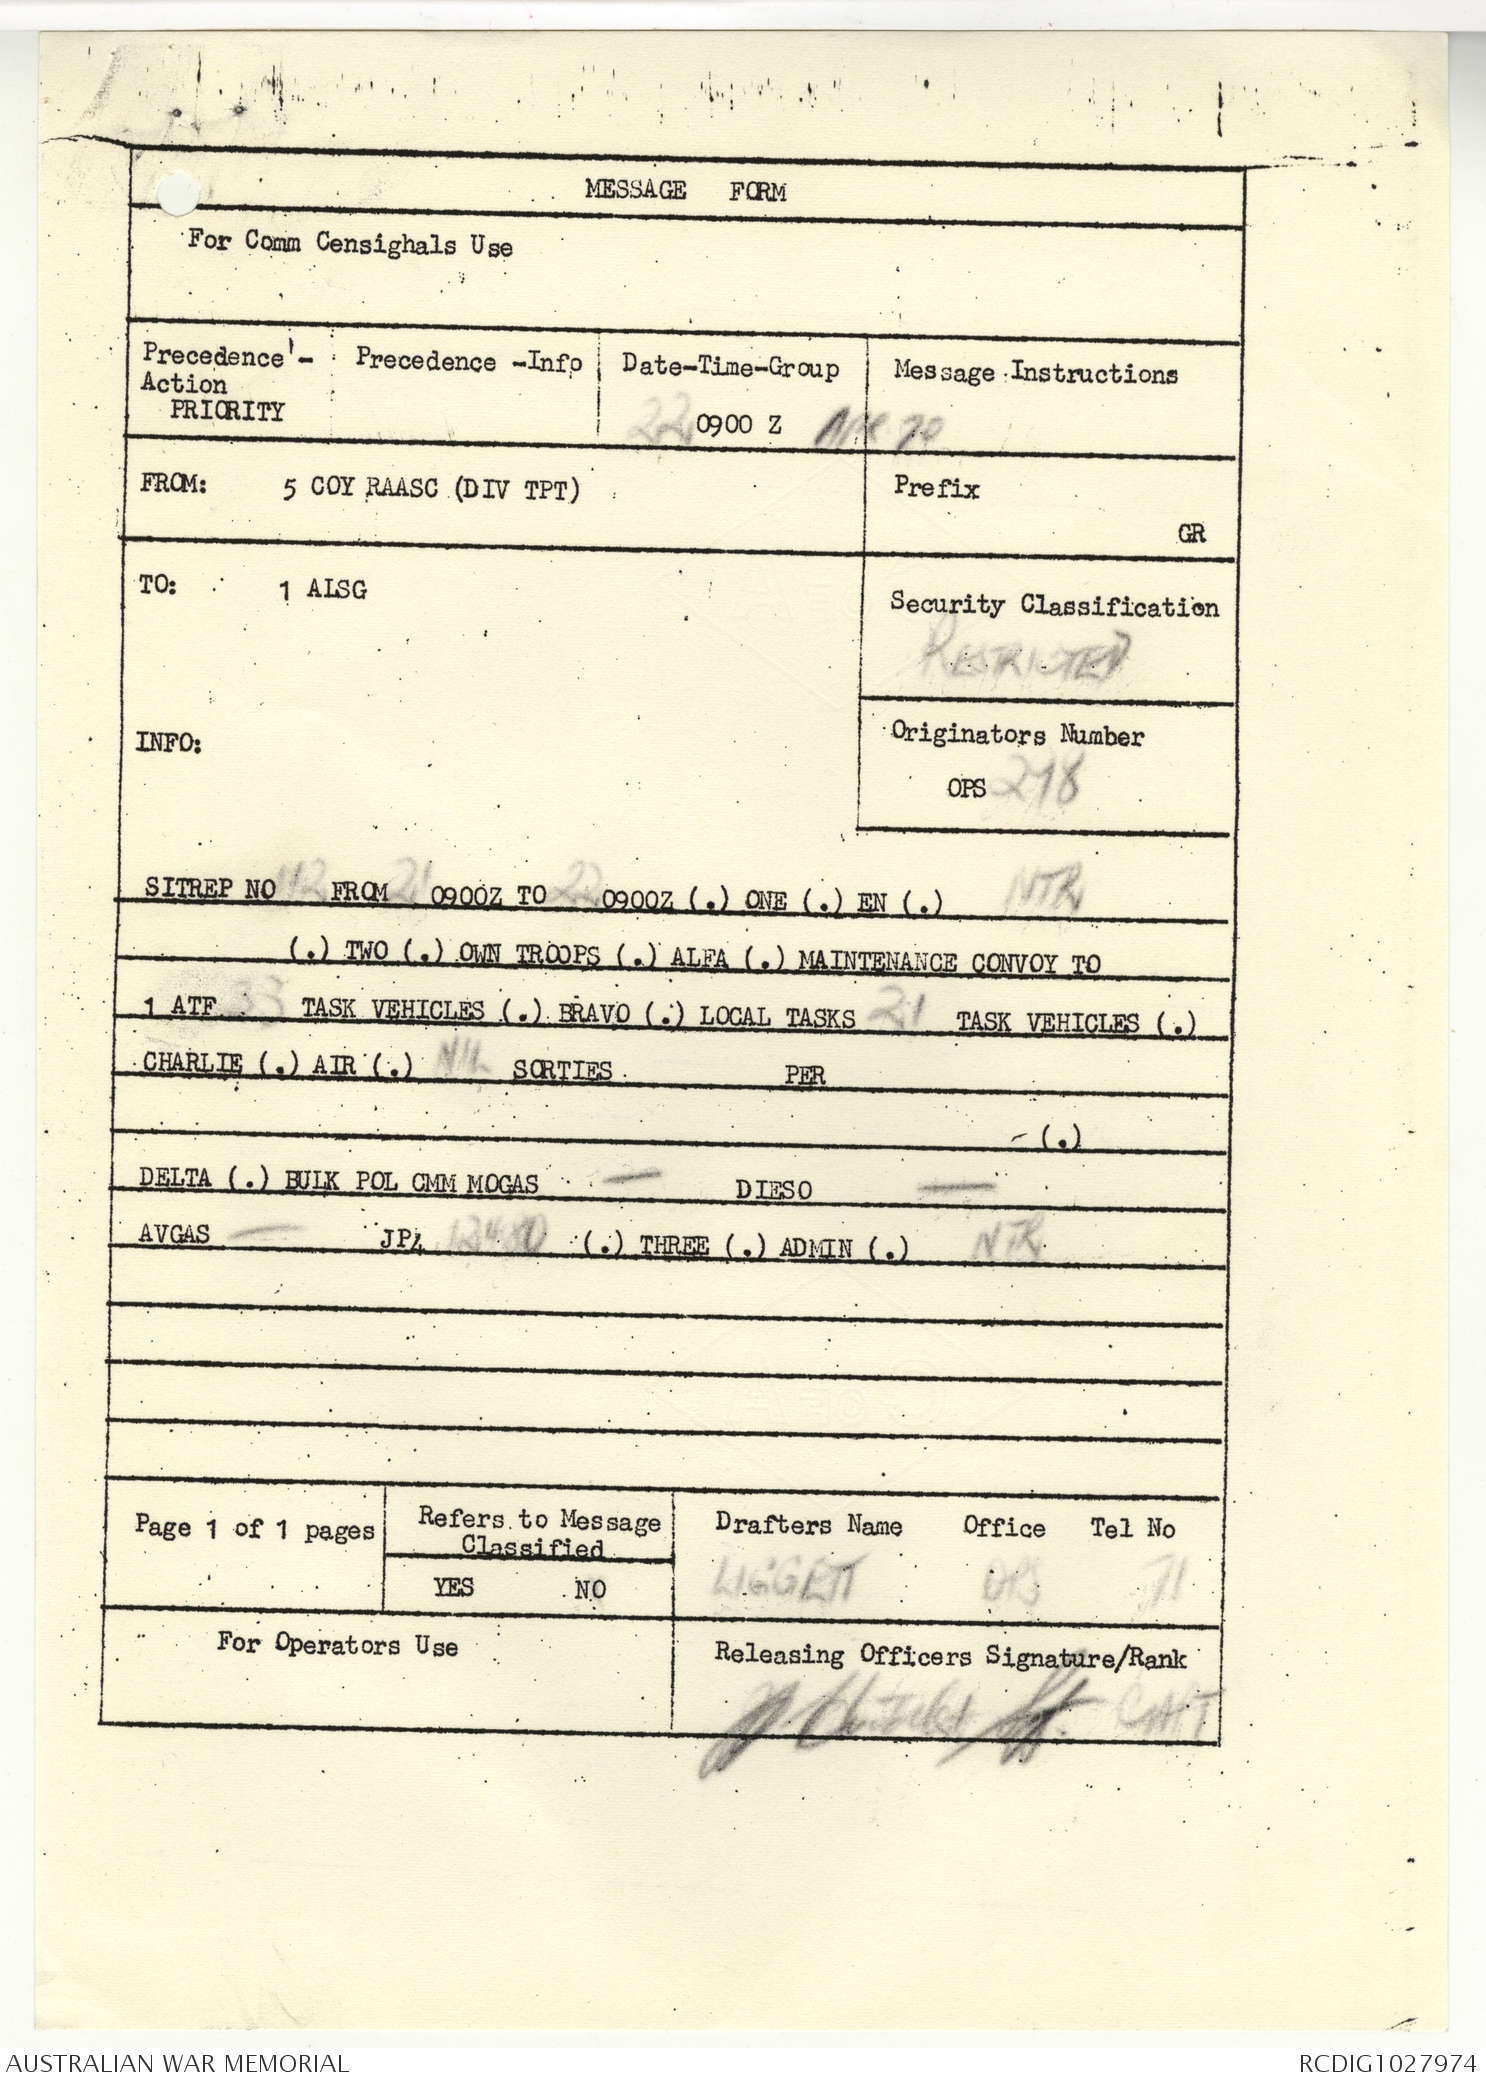 MESSAGE FORM
For Comm Censighals Use
Precedence - Precedence -Info Date-Time-Group Message Instructions
Action
PRIORITY 22 0900 Z APR 70
FROM: 5 COY RAASC (DIV TPT) Prefix
GR
TO: 1 ALSG Security Classification
RESTRICTED
INFO: Originators Number
OPS 278
SITREP NO 112 FROM 21 0900Z TO 22 0900Z (.) ONE (.) EN (.) NTR
(.) TWO (.) OWN TROOPS (.) ALFA (.) MAINTENANCE CONVOY TO
1 ATF 33 TASK VEHICLES (.) BRAVO (.) LOCAL TASKS 21 TASK VEHICLES (.)
CHARLIE (.) AIR (.) NIL SORTIES PER
- (.)
DELTA (.) BULK POL CMM MOGAS — DIESO —
AVGAS — JP4 12480 (.) THREE (.) ADMIN (.) NTR
Page 1 of 1 pages Refers to Message Drafters Name Office Tel No
Classified
YES NO LIGGETT OPS 71
For Operators Use Releasing Officers Signature/Rank
CAPT
AUSTRALIAN WAR MEMORIAL RCDIG1027974